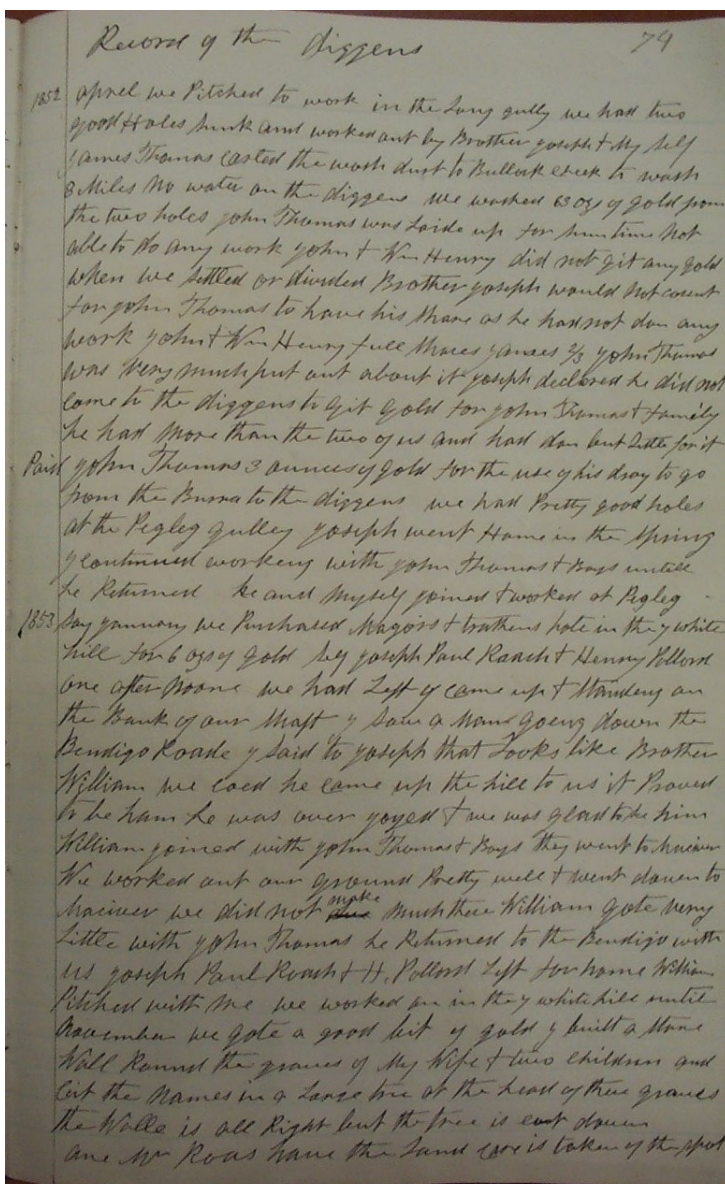 Record of the diggens 74
1852 aprel we Pitched to work in the Long gully we had two
good Holes sunk and worked out by Brother yoseph & My self
yames Thomas carted the wash dust to Bullock creek to wash
8 Miles No water on the diggens we washed 63 ozs of gold from
the two holes john Thomas was Laide up for sumtime Not
able to do any work john & Wm Henry did not git any gold
when we settled or divided Brother yoseph would Not consent
for john Thomas to have his share as he had not don any
work john & Wm Henry full shares yames 2/3 john Thomas
was Very much put out about it yoseph declared he did not
come to the diggens to git gold for john Thomas & family
he had More than the two of us and had don but Little for it
Paid john Thomas 3 ounces of gold for the use of his dray to go
from the Burra to the diggens we had Pretty good holes
at the Pegleg gulley yoseph went Home in the Spring
y continued working with john Thomas & Boys untill
he Returned he and Myself joined & worked at Pegleg
1853 Say yannary we Purchased Magors & trathens hole in the y white
hill for 6 ozs of gold by yoseph Paul Roach & Henry Pollord
one after Noone we had Left y came up & standeng on
the Bank of our shaft y saw a Man goeng down the
Bendigo Roade y said to yoseph that Looks like Brother
William we coed he came up the hill to us it Proved
to be ham he was over yoyed & we was glad to se him
William joined with john Thomas & Boys they went to
We worked out our ground Pretty well & went down to
we did not make much there William gote very
Little with john Thomas he Returned to the Bendigo with
us yoseph Paul Roach & H. Pollord Left for home William
Pitched with me we worked on in the y white hill until
November we gote a good bit of gold y built a stone
Wall Round the graves of My Wife & two children and
cut the Names in a Large tree at the head of thire graves
the Walle is all Right but the tree is cut down
one Mr Roas have the Land care is taken of the spot